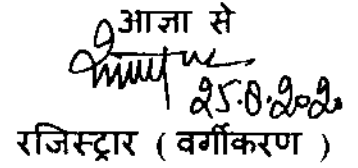 आज्ञा से
25.8.2020
रजिस्ट्रार ( वर्गीकरण )